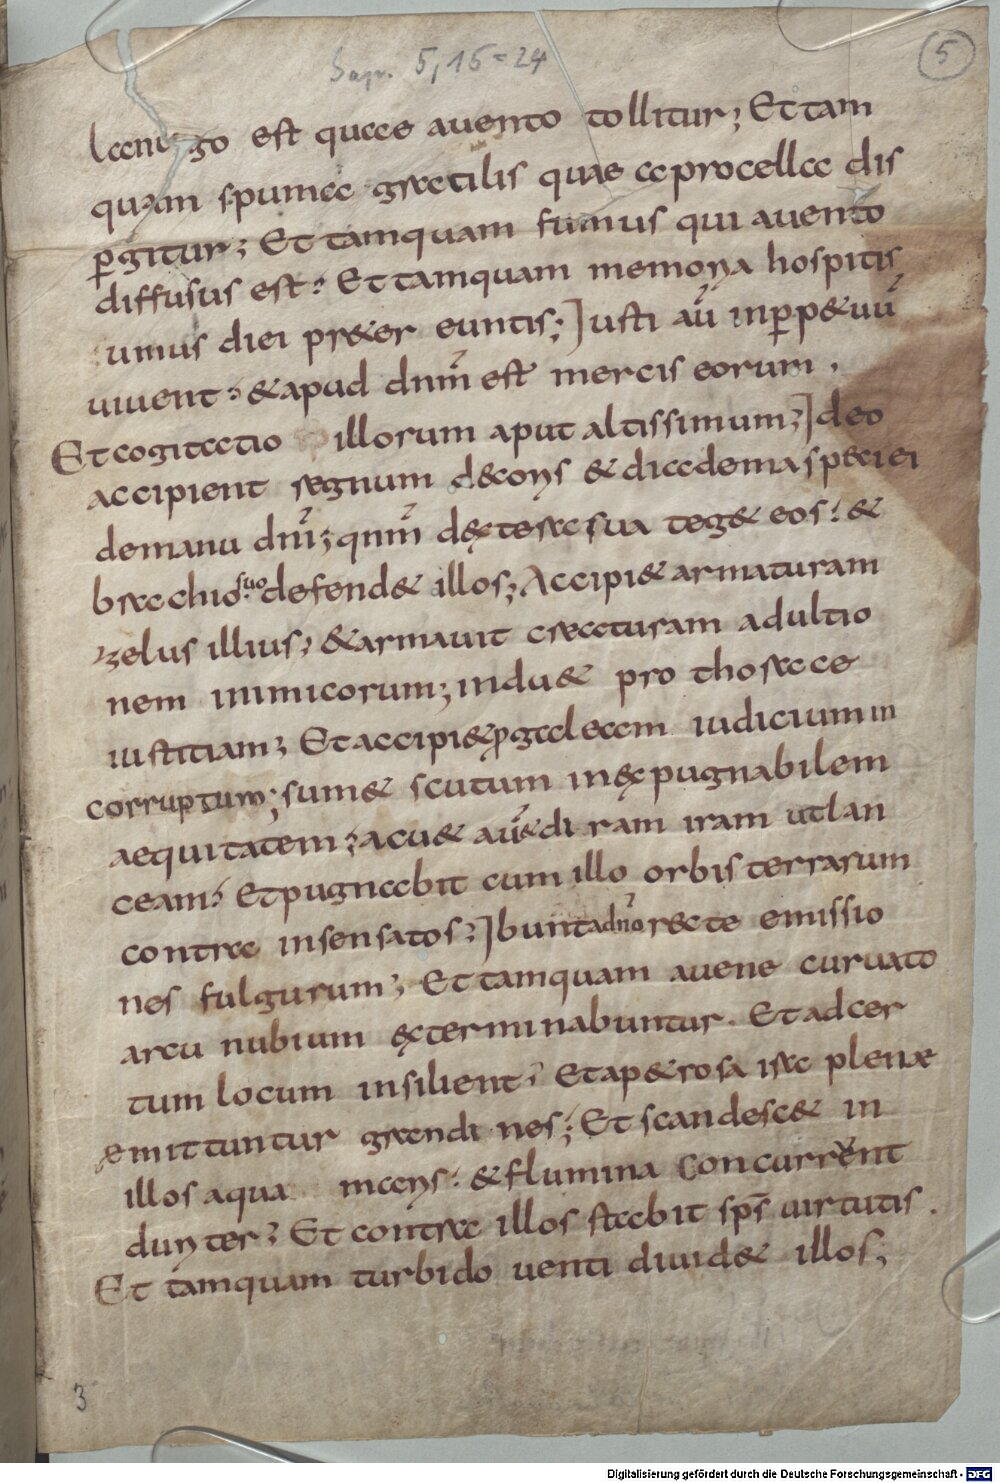 Sap. 5, 15-24
5
lanugo est quae auento tollitur; Et tam
quam spumae gratilis quae aprocella dis
pgitur; Et tamquam fumus qui auento
diffusus est; Et tamquam memoria hospitis
unius diei pr&er euntis; Iusti aū inpp&uū
uiuent; & apud dnm̄ est mercis eorum.
Et cogitatio illorum aput altissimum; Ideo
accipient regnum decoris & diadema speciei
demanu dnī; qnm̄ dextera sua teg& eos; &
brachio suo defend& illos; Accipi& armaturam
zelus illius; & armauit craeturam adultio
nem inimicorum; indu& pro thorace
iustitiam; Et accipi& p galeam iudicium in
corruptum; sum& scutum inexpugnabilem
aequitatem; acu& aū& di ram iram utlan
ceam; Et pugnabit cum illo orbis terrarum
contra insensatos; Ibunt adnō recte emissio
nes fulgurum; Et tamquam auene curuato
arcu nubium exterminabuntur. Et adcer
tum locum insilient; Et ap&rosa ira plenæ
emittuntur grandi nes; Et scandesc& in
illos aqua maris; & flumina concurrent
duriter; Et contra illos stabit sps̄ uirtutis.
Et tamquam turbido uenti diuid& illos;
3
Digitalisierung gefördert durch die Deutsche Forschungsgemeinschaft - DFG